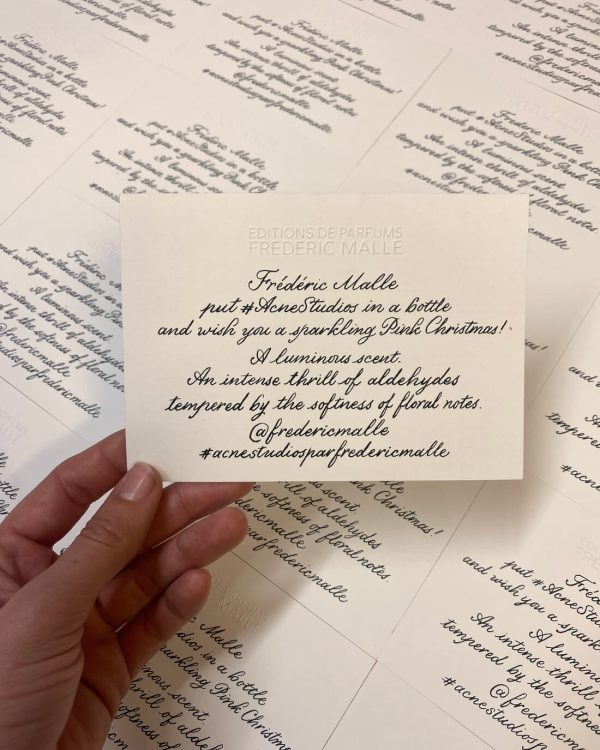 EDITIONS DE PARFUMS
FREDERIC MALLE
Frédéric Malle
put #AcneStudios in a bottle
and wish you a sparkling Pink Christmas!
A luminous scent.
An intense thrill of aldehydes
tempered by the softness of floral notes.
@fredericmalle
#acnestudiosparfredericmalle